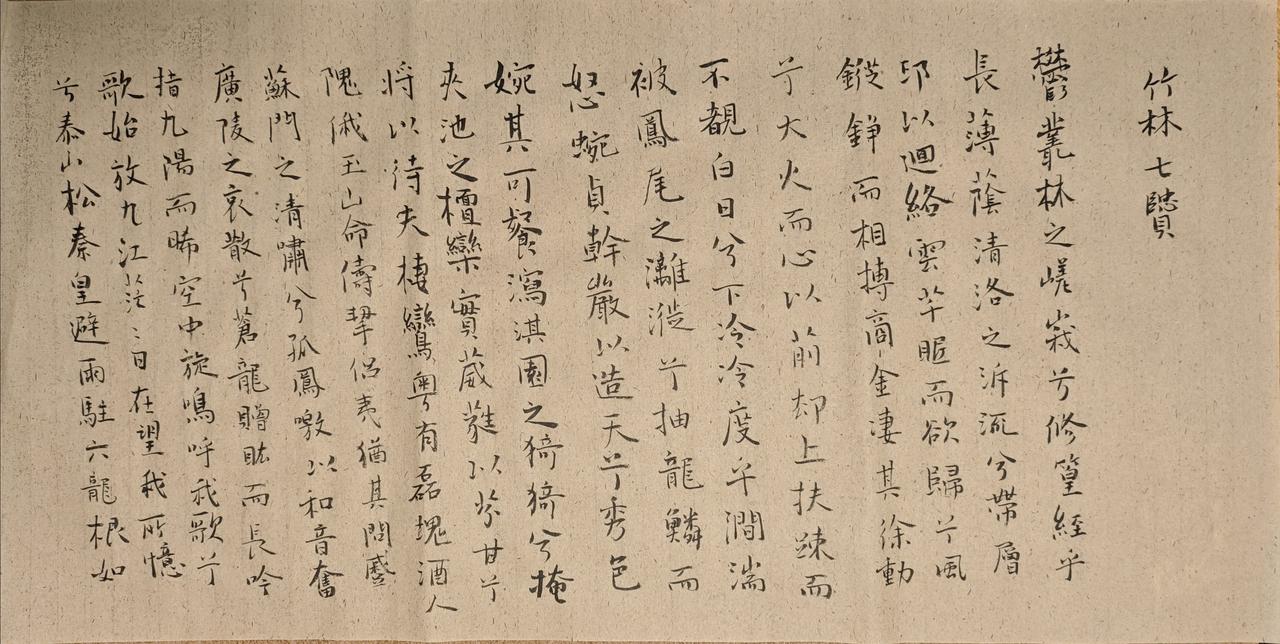 竹林七賢
鬱叢林之嵯峩兮修篁經乎
長薄蔭清洛之泝流兮帶層
邱以迴絡雲芊眠而欲歸兮風
鏦錚而相摶商金淒其徐動
兮大火而心以前却上扶疎而
不覩白日兮下泠泠度乎澗湍
被鳳尾之灕漇兮抽龍鱗而
怒蜿貞幹巖以造天兮秀色
婉其可餐瀉淇園之猗猗兮掩
夾池之檀欒實葳蕤以芬甘兮
將以待夫棲鸞粵有磊塊酒人
隗俄玉山命儔挈侶夷猶其間
蘇門之清嘯兮孤鳳噭以和音奮
廣陵之哀散兮蒼龍贈肱而長吟
揩九陽而晞空中旋鳴呼我歌兮
歌始放九江茫茫日在望我所憶
兮泰山松秦皇避雨駐六龍根如